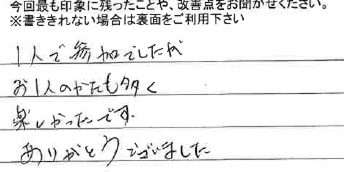 今回最も印象に残ったことや、改善点をお聞かせください。
※書ききれない場合は裏面をご利用下さい
1人で参加でしたが
お1人のかたも多く
楽しかったです.
ありがとうございました